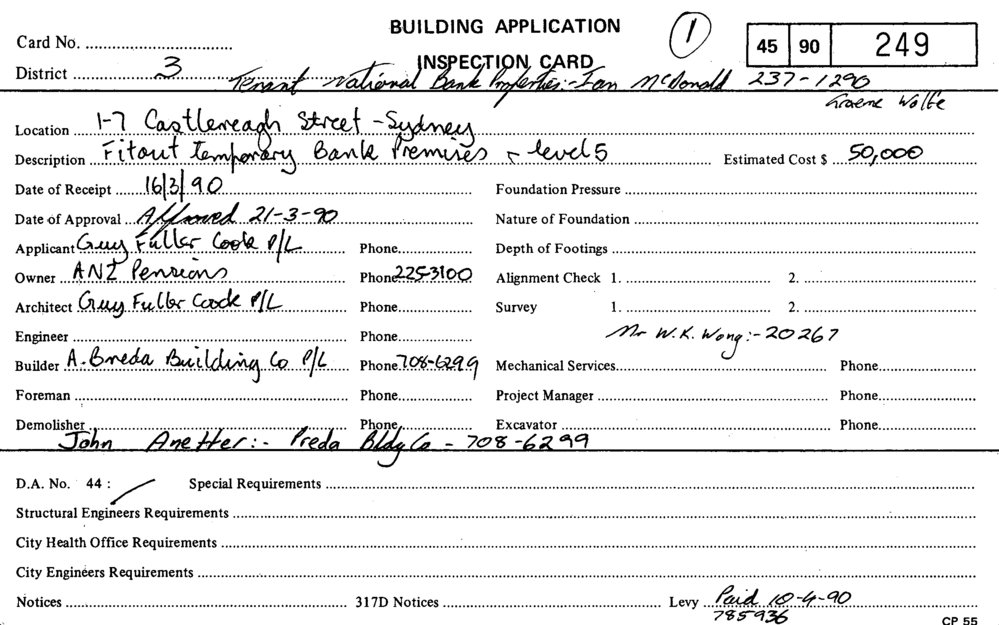 BUILDING APPLICATION
INSPECTION CARD
1
45 90 249
Card No.
District 3
Tenant National Bank Properties:- Ian McDonald 237-1290
Graeme Wolfe
Location 1-7 Castlereagh Street - Sydney
Description Fitout Temporary Bank Premises - level 5 Estimated Cost $ 50,000
Date of Receipt 16/3/90 Foundation Pressure
Date of Approval Approved 21-3-90 Nature of Foundation
Applicant Guy Fuller Cook P/L Phone Depth of Footings
Owner ANZ Pensions Phone 225-3100 Alignment Check 1. 2.
Architect Guy Fuller Cook P/L Phone Survey 1. 2.
Engineer Phone Mr W.K. Wong:- 20267
Builder A. Breda Building Co P/L Phone 708-6299 Mechanical Services Phone
Foreman Phone Project Manager Phone
Demolisher Phone Excavator Phone
John :- Preda Bldg Co - 708-6299
D.A. No. 44 : Special Requirements
Structural Engineers Requirements
City Health Office Requirements
City Engineers Requirements
Notices 317D Notices Levy Paid 10-4-90
785936
CP 55